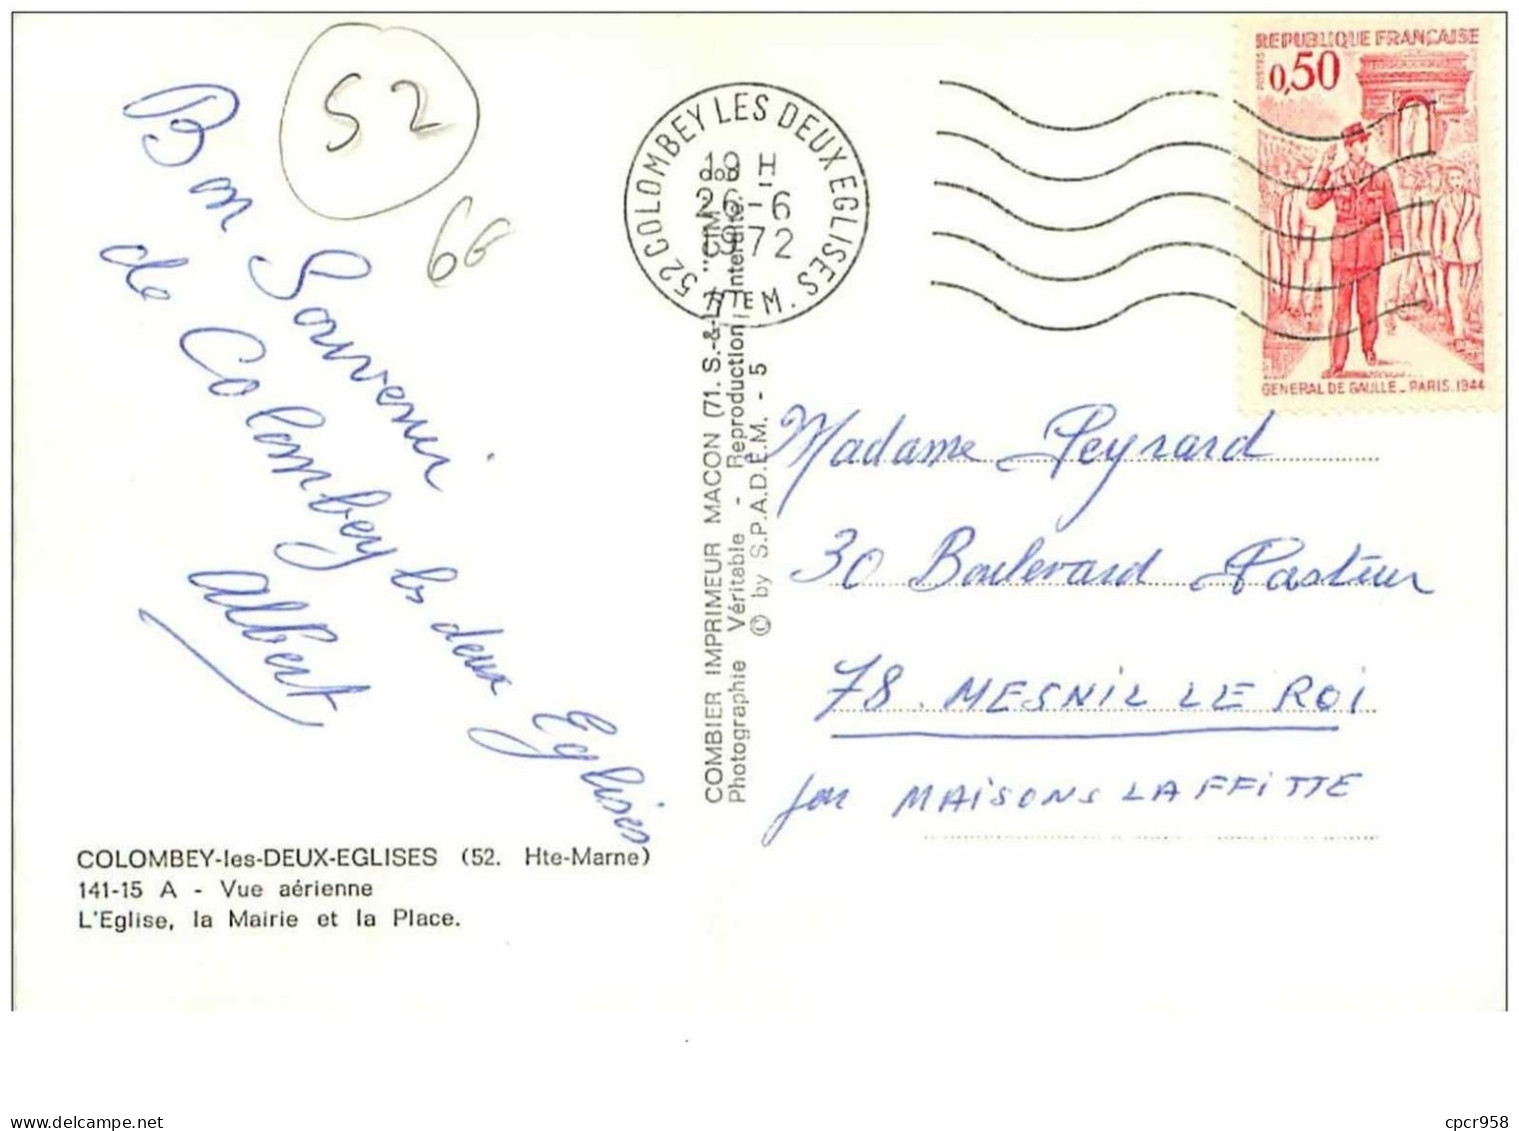 52
66
Bon Souvenir
de Colombey les deux Eglises
Albert
COLOMBEY-les-DEUX-EGLISES (52. Hte-Marne)
141-15 A - Vue aérienne
L'Eglise, la Mairie et la Place.
COMBIER IMPRIMEUR MACON (71. S.-&-L.) "CIM"
Photographie Véritable - Reproduction Interdite.
© by S.P.A.D.E.M. - 5
52 COLOMBEY LES DEUX EGLISES
19 H
26-6
1972
HTE M.
REPUBLIQUE FRANÇAISE
POSTES
0,50
GENERAL DE GAULLE_PARIS.1944
Madame Peyrard
30 Boulevard Pasteur
78. MESNIL LE ROI
par MAISONS LAFFITTE
cpcr958